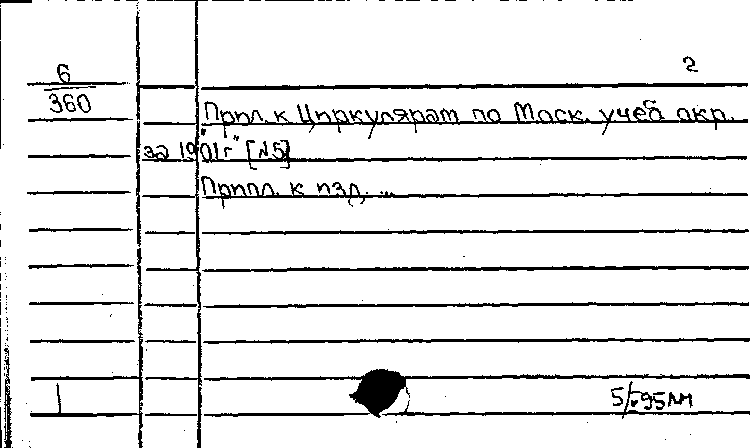 6
2
360
Прил. к Циркулярам по Моск. учеб окр.
за 1901г" [N5]
Прилл. к изд. ...